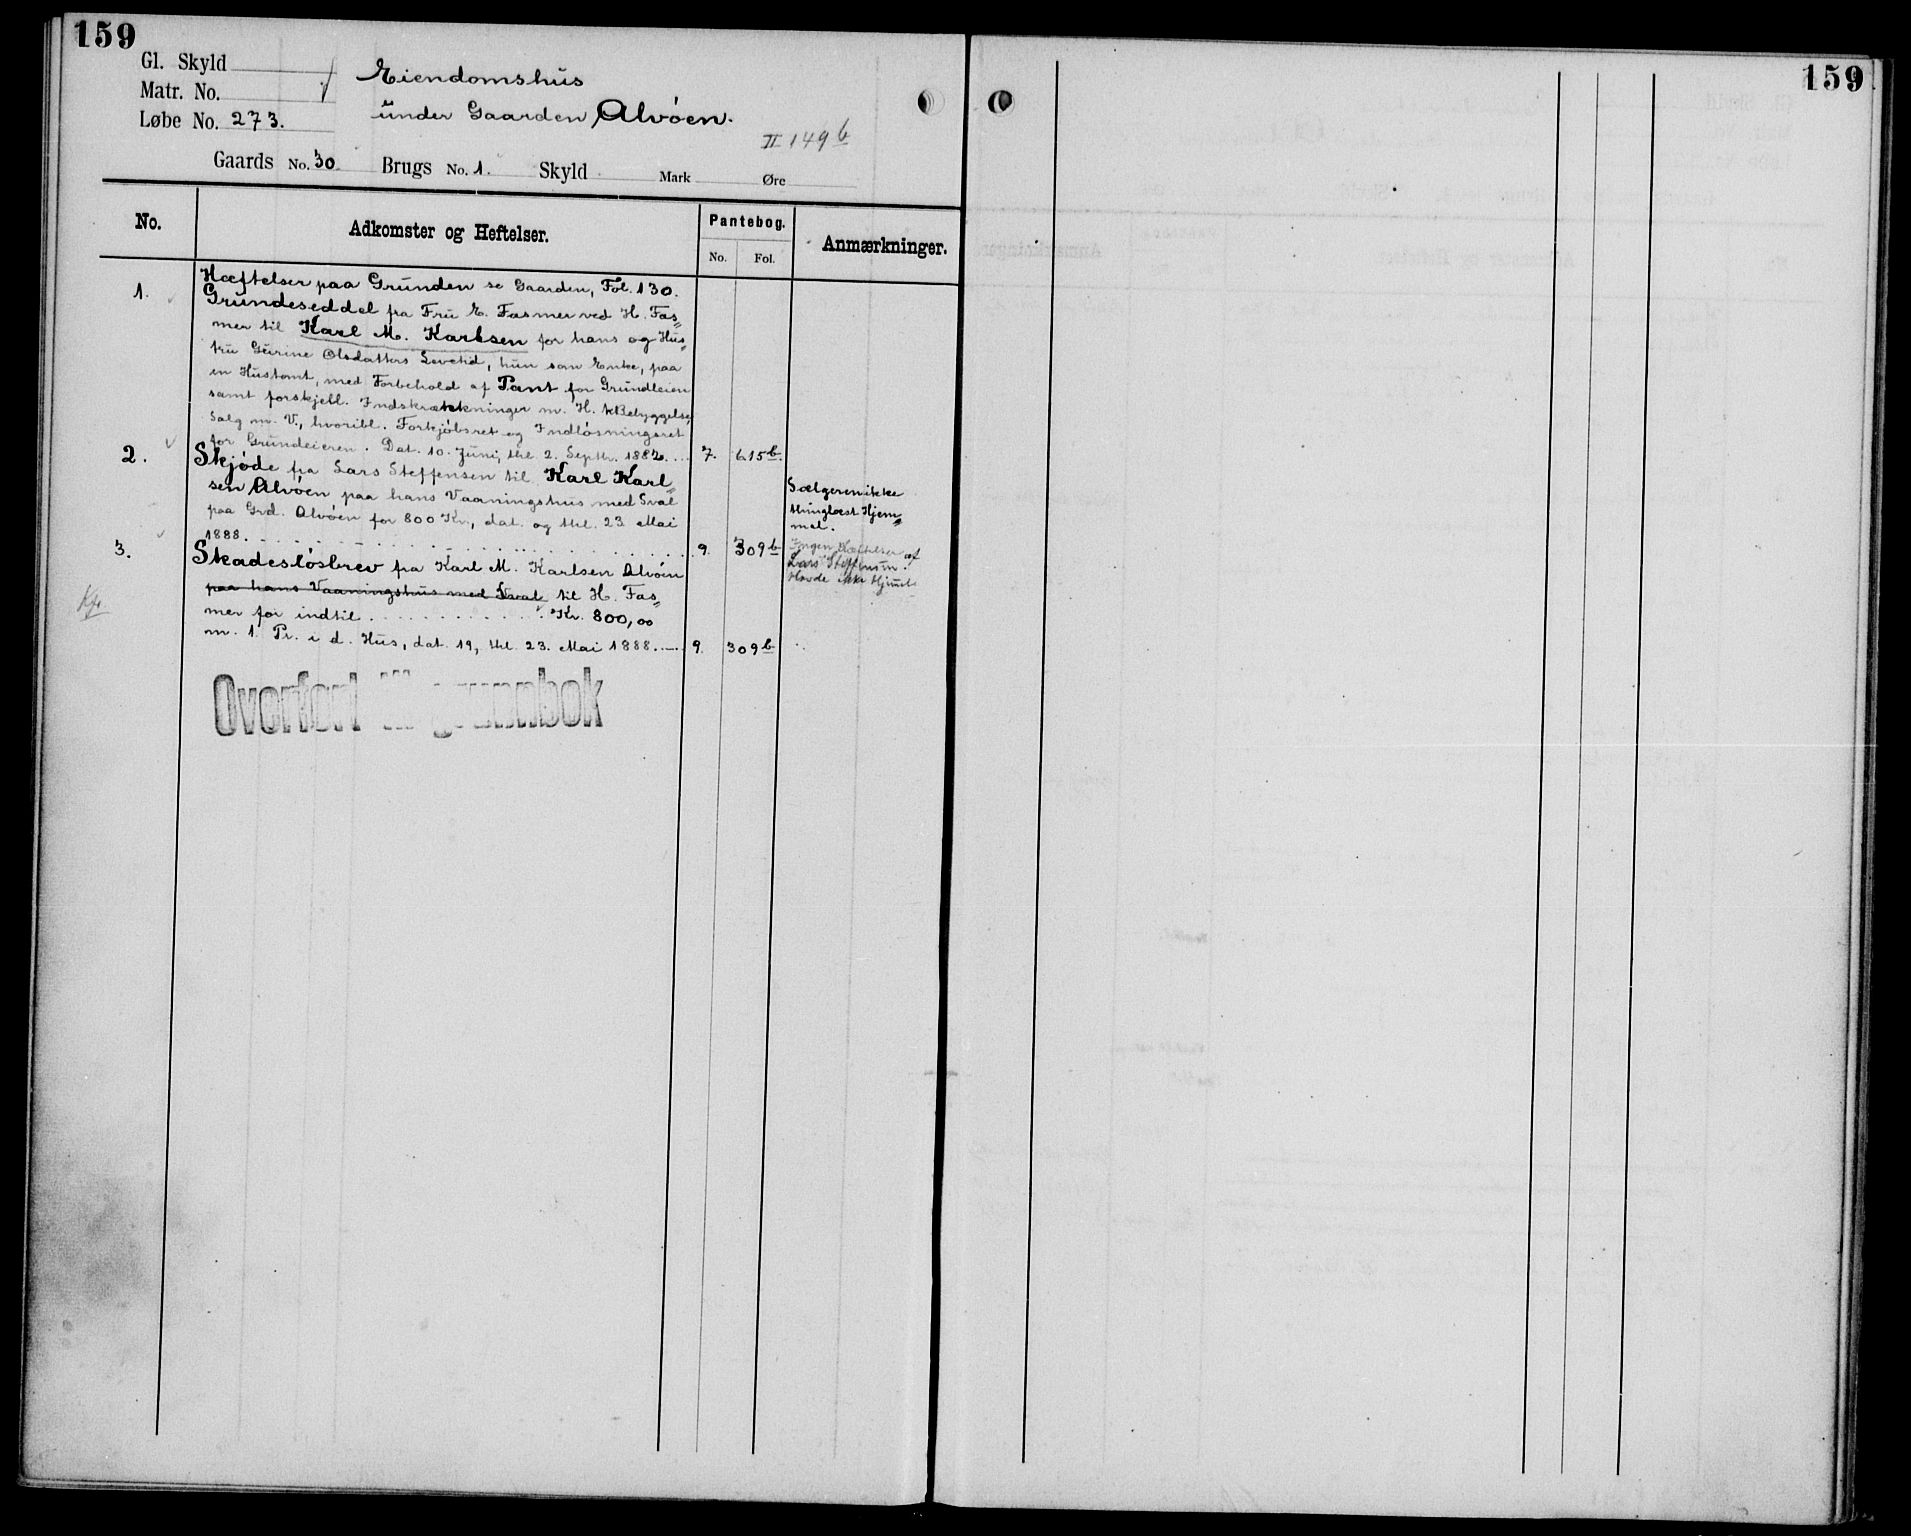 159
159
Gl. Skyld
Matr. No.
Løbe No. 273.
Eiendomshus
under Gaarden Alvøen.
II 149 b
Gaards No. 30 Brugs No. 1. Skyld Mark Øre
No. Adkomster og Heftelser. Pantebog. Anmærkninger.
No. Fol.
Hæftelser paa Grunden se Gaarden, Fol. 130.
1. Grundeseddel fra Fru E. Fasmer ved H. Fas„
mer til Karl M. Karlsen for hans og Hus„
tru Gurine Olsdatters Levetid, hun som Enke, paa
en Hustomt, med Forbehold af Pant for Grundleien
samt forskjell. Indskrænkninger m. H. t. Bebyggelse,
Salg m. V., hvoribl. Forkjøbsret og Indløsningsret
for Grundeieren. Dat. 10. Juni, thl. 2. Septbr. 1882. 7. 615 b.
2. Skjøde fra Lars Steffensen til Karl Karl„
sen Alvøen paa hans Vaaningshus med Sval
paa Grd. Alvøen for 800 Kr, dat. og thl. 23 Mai
1888. 9. 309 b
Sælgeren ikke
thinglæst Hjem„
mel.
Ingen Hæftelser af
Lars Steffensen.
Havde ikke Hjemel
3. Skadesløsbrev fra Karl M. Karlsen Alvøen
paa hans Vaaningshus med Sval til H. Fas„
mer for indtil Kr. 800,00
m. 1. Pr. i d. Hus, dat. 19, thl. 23. Mai 1888. 9. 309 b
Overført til grunnbok